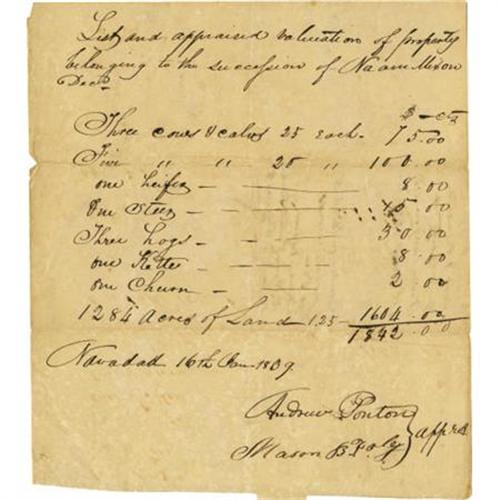 List and appraised valuation of property
belonging to the succession of Naom Mixon
Decd
$ - cts
Three cows & calves 25 Each - 75.00
Five " " 20 " 100.00
one heifer - 8.00
One Steer - 15.00
Three hogs - 30.00
one Kettle 8.00
one Churn - 2.00
1284 Acres of Land 1.25 - 1604.00
1842.00
16th Jan 1839
Andrew Ponton
Mason B Foley } apprs